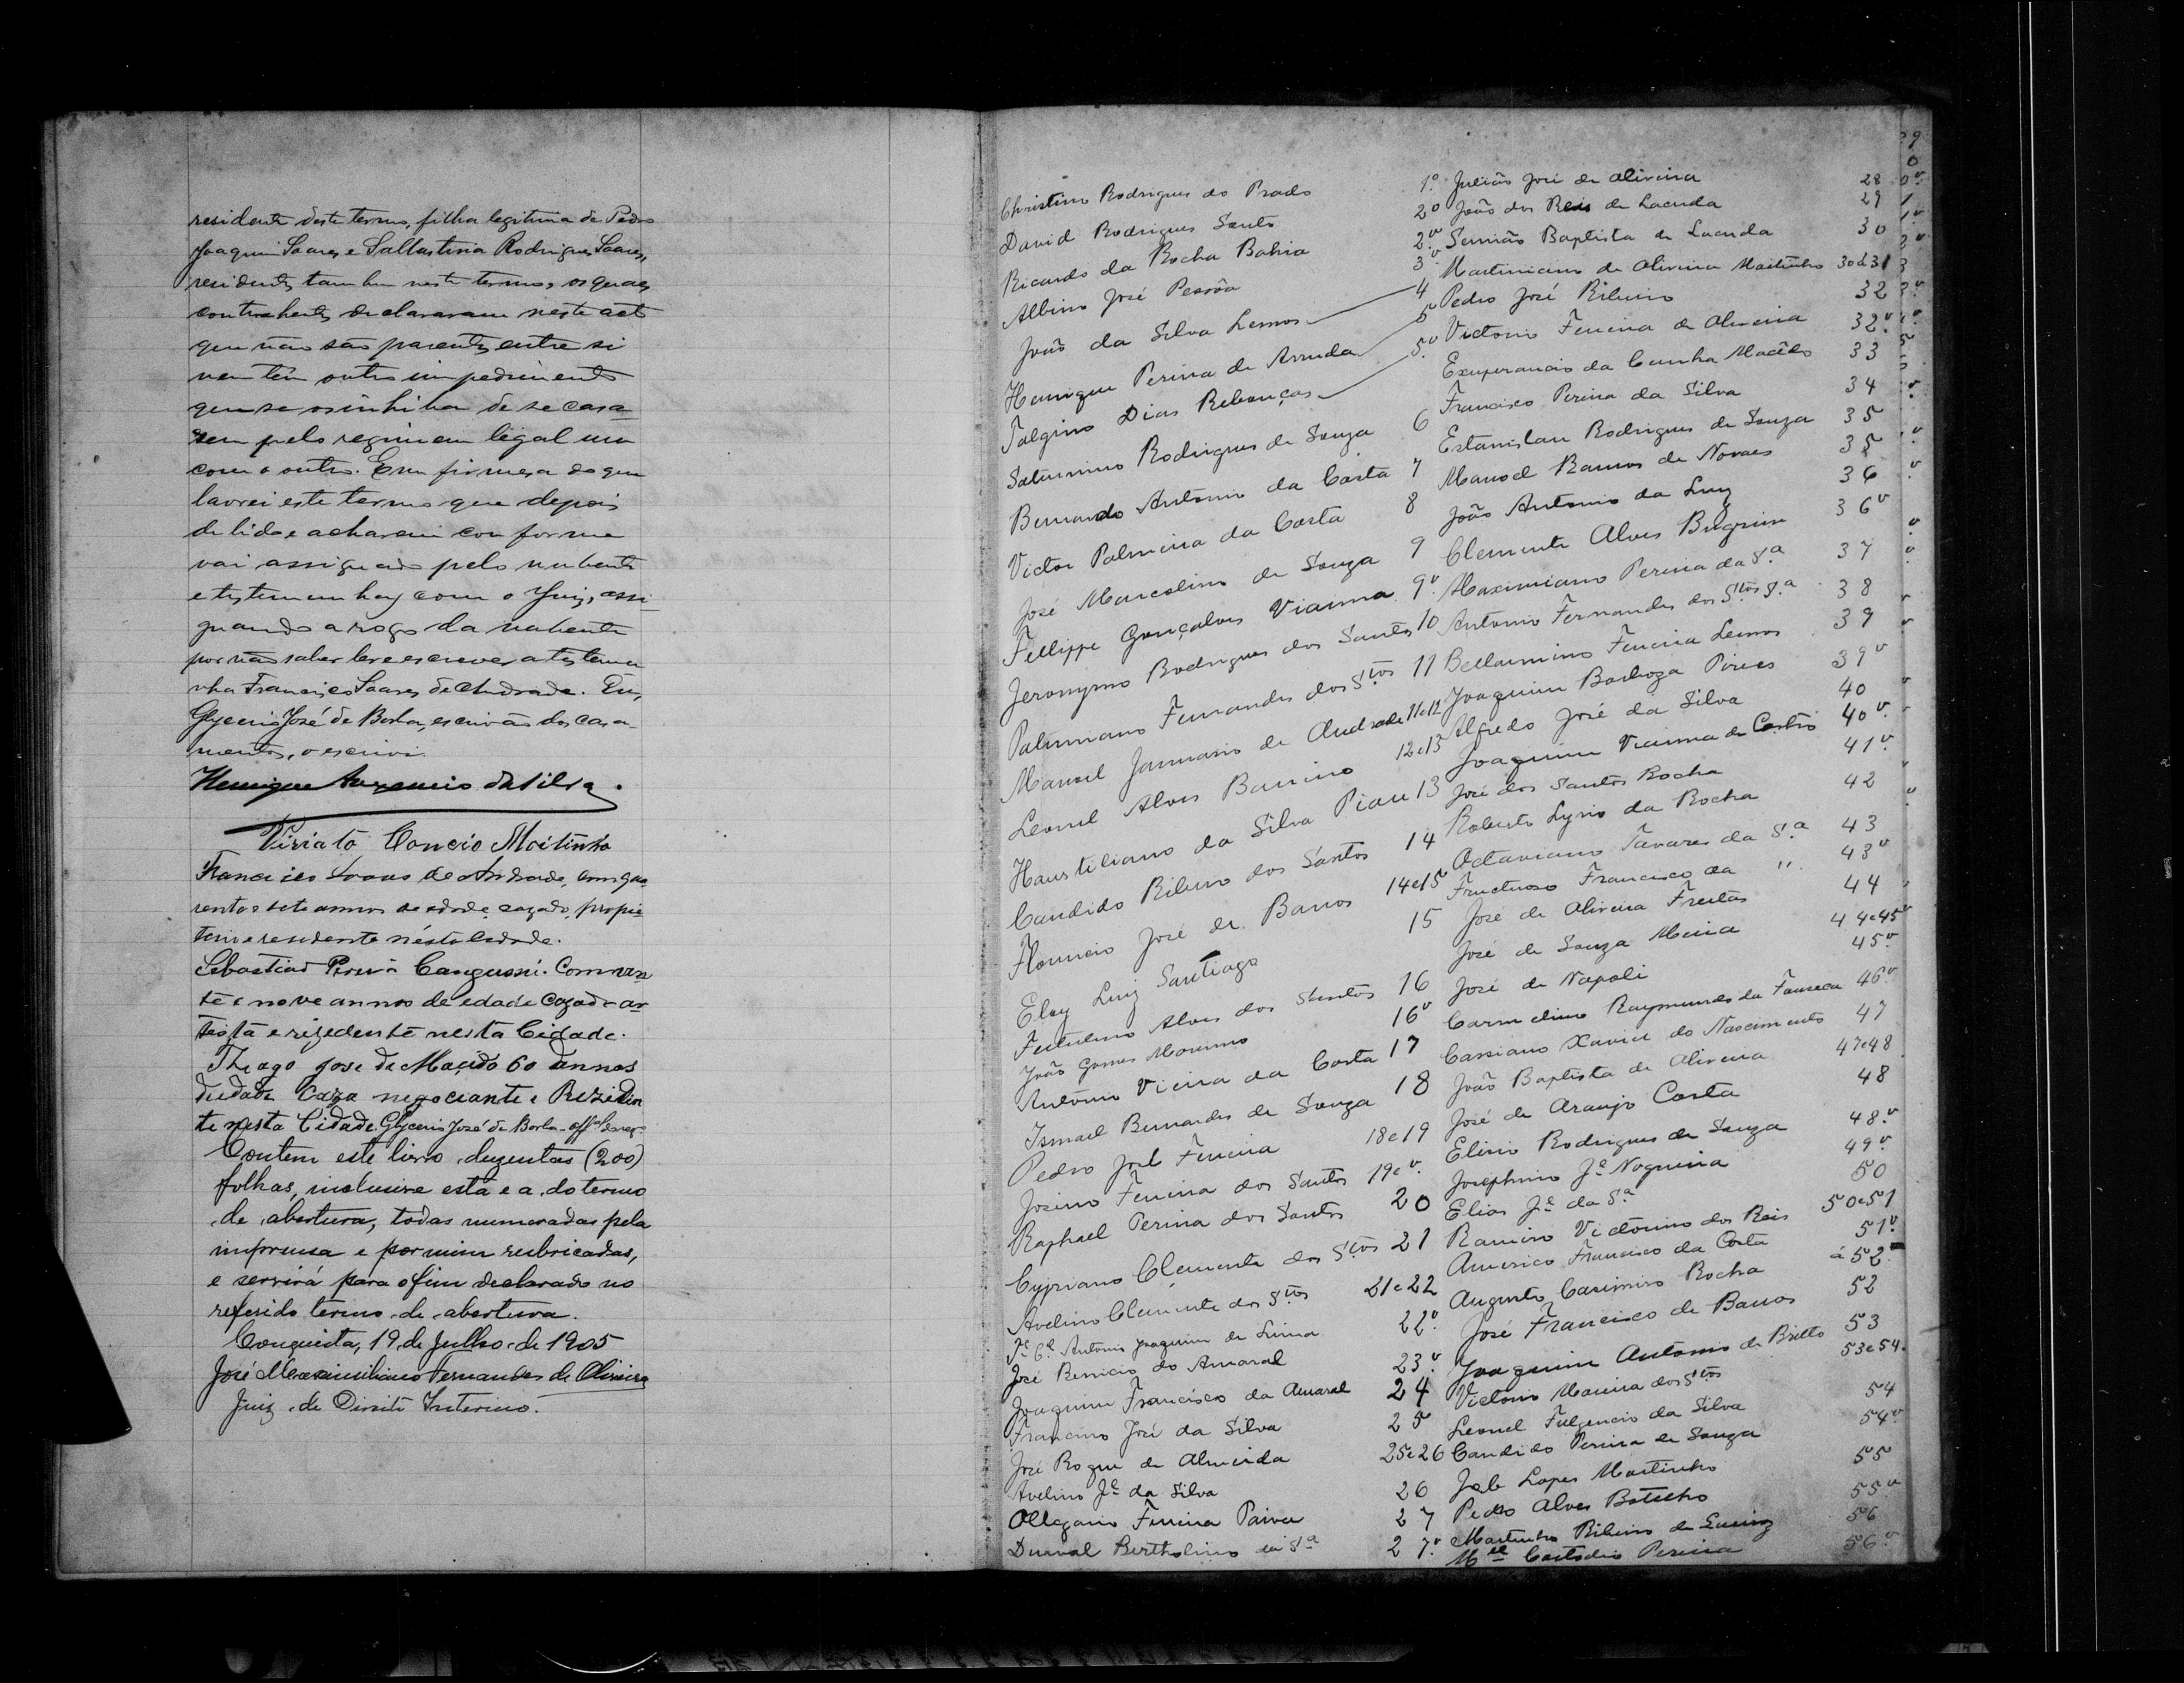 residente deste termo, filha legitima de Pedro
Joaquim Soares e Sallustina Rodrigues Soares,
residentes tambem neste termo, os quaes
contrahentes declararam neste acto
que não são parentes entre si
nem têm outro impedimento
que se os inhiba de se casa-
rem pelo regimem legal um
com o outro. Em firmeza do que
lavrei este termo que depois
de lido e acharem conforme
vai assignado pelo nubente
e testemunhas com o Juiz, assi-
gnando a rogo da nubente
por não saber ler e escrever a testemu
nha Francisco Soares de Andrade. Eu,
Glycerio José de Borba, escrivão dos casa-
mentos, o escrevi.
Henrique da Silva.
Viriato Moitinho
Francisco Soares de Andrade, com qua
renta e sete annos de edade, cazado, propie
tario e residente nésta Cidade.
Sebastião Cangussú. Com
te e nove annos de edade Cazado ar
tista e rizedente nesta Cidade.
Thiago Jose de Macêdo 60 annos
de dade Caza negociante e Rezidin
te nesta Cidade. Glycerio José de Borba
Contem este livro duzentas (200)
folhas, inclusive esta e a do termo
de abertura, todas numeradas pela
imprensa e por mim rubricadas,
e servirá para o fim declarado no
referido termo de abertura.
Conquista, 19 de Julho de 1905
José Maximiliano Fernandes de Oliveira
Juiz de Direito Interino.
Christino Rodrigues do Prado 1º
David Rodrigues Santos 2º
Ricardo da Rocha Bahia 2v.
Albino José Pessôa 3v.
João da Silva Lemos 4
Henrique Pereira de Arruda 5
Dias Rebouças 5v.
Saturnino Rodrigues de Souza 6
Bernardo Antonio da Costa 7
Victor Palmeira da Costa 8
José Marcolino de Souza 9
Fellippe Gonçalves Vianna 9v.
Jeronymo Rodrigues dos Santos 10
Fernandes dos Stos 11
Manoel Januario de Andrade 11e12
Leonel Alves 12e13
da Silva Piau 13
Candido Ribeiro dos Santos 14
Florencio José de Barros 14e15
Eloy Luiz Santiago 15
Alves dos Santos 16
João Gomes 16v
Antonio Vieira da Costa 17
Ismael Bernardes de Souza 18
Pedro Job Ferreira 18e19
Josino Ferreira dos Santos 19ev.
Raphael Pereira dos Santos 20
Cypriano Clemente dos Stos 21
Avelino Clemente dos Stos 21e22
Antonio Joaquim de Lima 22v.
José Benicio do Amaral 23v.
Joaquim Francisco do Amaral 24
José da Silva 25
José Roque de Almeida 25e26
Avelino Jé da Silva 26
Ollegario Ferreira Paiva 27
Durval Bertholino da Sa 27v.
Julião José de Oliveira 28
João dos Reis de Lacerda 29
Baptista de Lacerda 30
Martiniano de Oliveira Moitinho 30e31
Pedro José Ribeiro 32
Victorio Ferreira de Oliveira 32v.
Exuperancio da Cunha Macêdo 33
Francisco Pereira da Silva 34
Estanislau Rodrigues de Souza 35
Manoel Ramos de Novaes 35
João Antonio da Luz 36
Clemente Alves 36v
Maximiano Pereira da Sa 37
Antonio Fernandes dos Stos Sa 38
Bellarmino Ferreira Lemos 39
Joaquim Barboza Pires 39v
Alfredo José da Silva 40
Joaquim Vianna de Castro 40v.
José dos Santos Rocha 41v.
Roberto Lyrio da Rocha 42
Octaviano Tavares da Sa 43
Fructuoso Francisco da " 43v
José de Oliveira Freitas 44
José de Souza Meira 44e45v
José de Napoli 45v.
Raymundo da Fonseca 46v
Cassiano Xavier do Nascimento 47
João Baptista de Oliveira 47e48
José de Araujo Costa 48
Rodrigues de Souza 48v.
Josephino Jé Nogueira 49v.
Elias Jé da Sa 50
Ramiro Victorino dos Reis 50e51
Americo Francisco da Costa 51v.
Augusto Casimiro Rocha á 52
José Francisco de Barros 52
Joaquim Antonio de Britto 53
Victorio Moreira dos Stos 53e54.
Leonel Fulgencio da Silva 54
Candido Pereira de Souza 54v
Job Lopes Moitinho 55
Pedro Alves Botelho 55v
Martinho Ribeiro de 56
Mel Custodio Pereira 56v